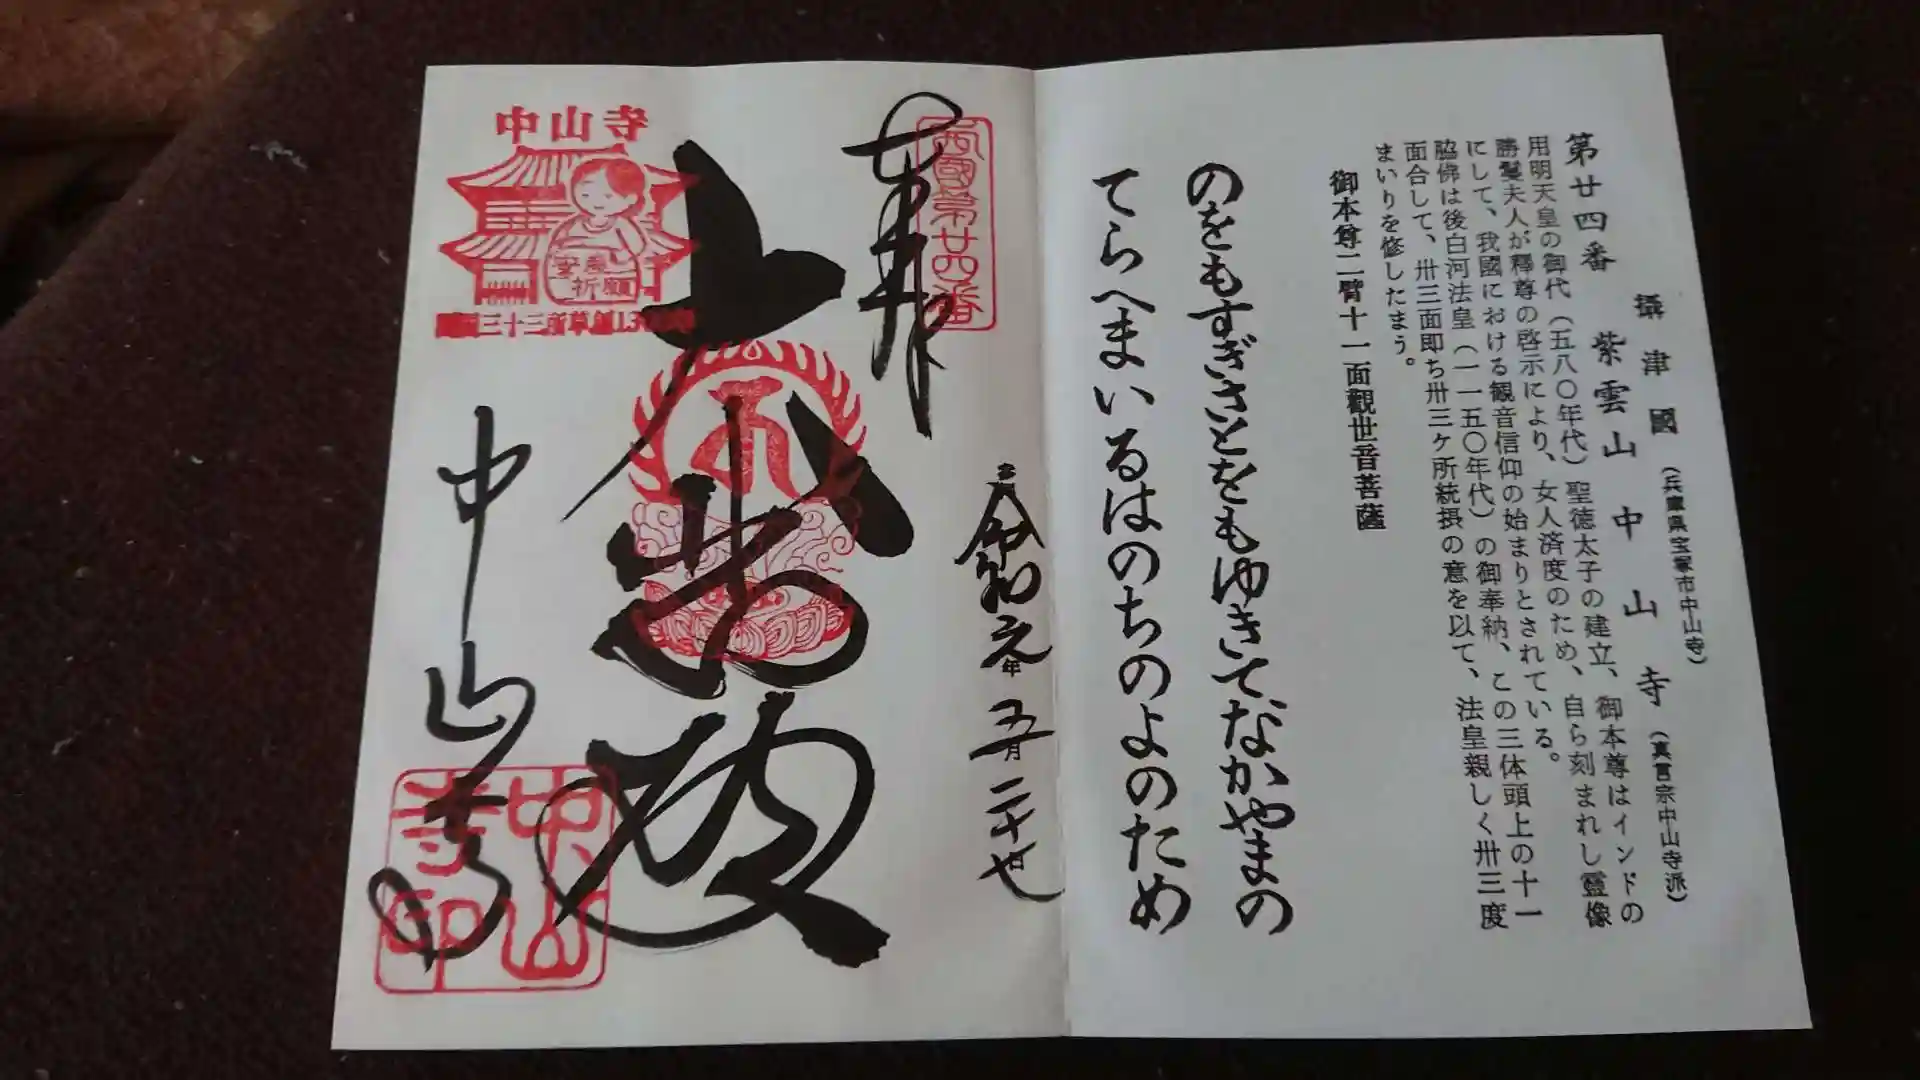 攝津國（兵庫県宝塚市中山寺）
第廿四番　紫雲山中山寺（真言宗中山寺派）
用明天皇の御代（五八〇年代）聖徳太子の建立、御本尊はインドの
勝鬘夫人が釋尊の啓示により、女人済度のため、自ら刻まれし霊像
にして、我國における観音信仰の始まりとされている。
脇佛は後白河法皇（一一五〇年代）の御奉納、この三体頭上の十一
面合して、卅三面即ち卅三ケ所統摂の意を以て、法皇親しく卅三度
まいりを修したまう。
御本尊二臂十一面觀世音菩薩
のをもすぎさとをもゆきてなかやまの
てらへまいるはのちのよのため
西國第廿四番
奉拝
令和元年五月二十七日
大悲殿
中山寺
中山寺
安産
祈願
中山寺印